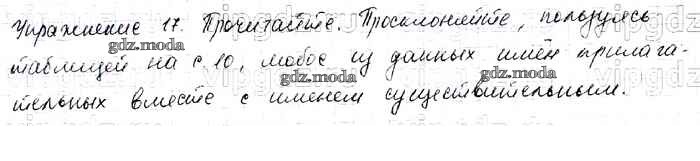 Упражнение 17. Прочитайте. Просклоняйте, пользуясь
gdz.moda
таблицей на с. 10, любое из данных имён прилага-
gdz.moda
тельных вместе с именем существительным.
gdz.moda